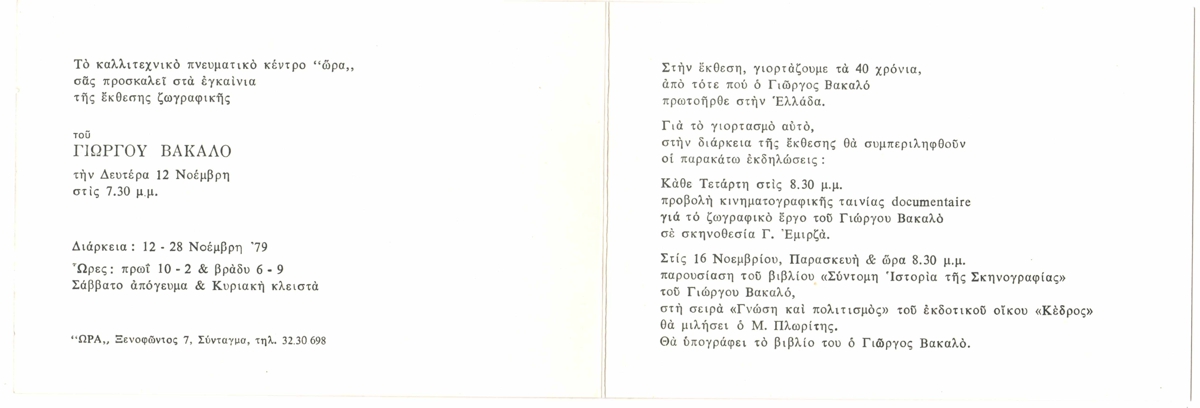 Τὸ καλλιτεχνικὸ πνευματικὸ κέντρο “ὥρα„
σᾶς προσκαλεῖ στὰ ἐγκαίνια
τῆς ἔκθεσης ζωγραφικῆς
τοῦ
ΓΙΩΡΓΟΥ ΒΑΚΑΛΟ
τὴν Δευτέρα 12 Νοέμβρη
στὶς 7.30 μ.μ.
Διάρκεια : 12 - 28 Νοέμβρη '79
Ὧρες : πρωῒ 10 - 2 & βράδυ 6 - 9
Σάββατο ἀπόγευμα & Κυριακὴ κλειστὰ
“ΩΡΑ„ Ξενοφῶντος 7, Σύνταγμα, τηλ. 32.30 698
Στὴν ἔκθεση, γιορτάζουμε τὰ 40 χρόνια,
ἀπὸ τότε ποὺ ὁ Γιῶργος Βακαλό
πρωτοῆρθε στὴν Ἑλλάδα.
Γιὰ τὸ γιορτασμὸ αὐτὸ,
στὴν διάρκεια τῆς ἔκθεσης θὰ συμπεριληφθοῦν
οἱ παρακάτω ἐκδηλώσεις :
Κάθε Τετάρτη στὶς 8.30 μ.μ.
προβολὴ κινηματογραφικῆς ταινίας documentaire
γιά τό ζωγραφικὸ ἔργο τοῦ Γιώργου Βακαλὸ
σὲ σκηνοθεσία Γ. Ἐμιρζᾶ.
Στίς 16 Νοεμβρίου, Παρασκευὴ & ὥρα 8.30 μ.μ.
παρουσίαση τοῦ βιβλίου «Σύντομη Ἱστορία τῆς Σκηνογραφίας»
τοῦ Γιώργου Βακαλό,
στὴ σειρὰ «Γνώση καὶ πολιτισμὸς» τοῦ ἐκδοτικοῦ οἴκου «Κέδρος»
θὰ μιλήσει ὁ Μ. Πλωρίτης.
Θὰ ὑπογράφει τὸ βιβλίο του ὁ Γιῶργος Βακαλὸ.